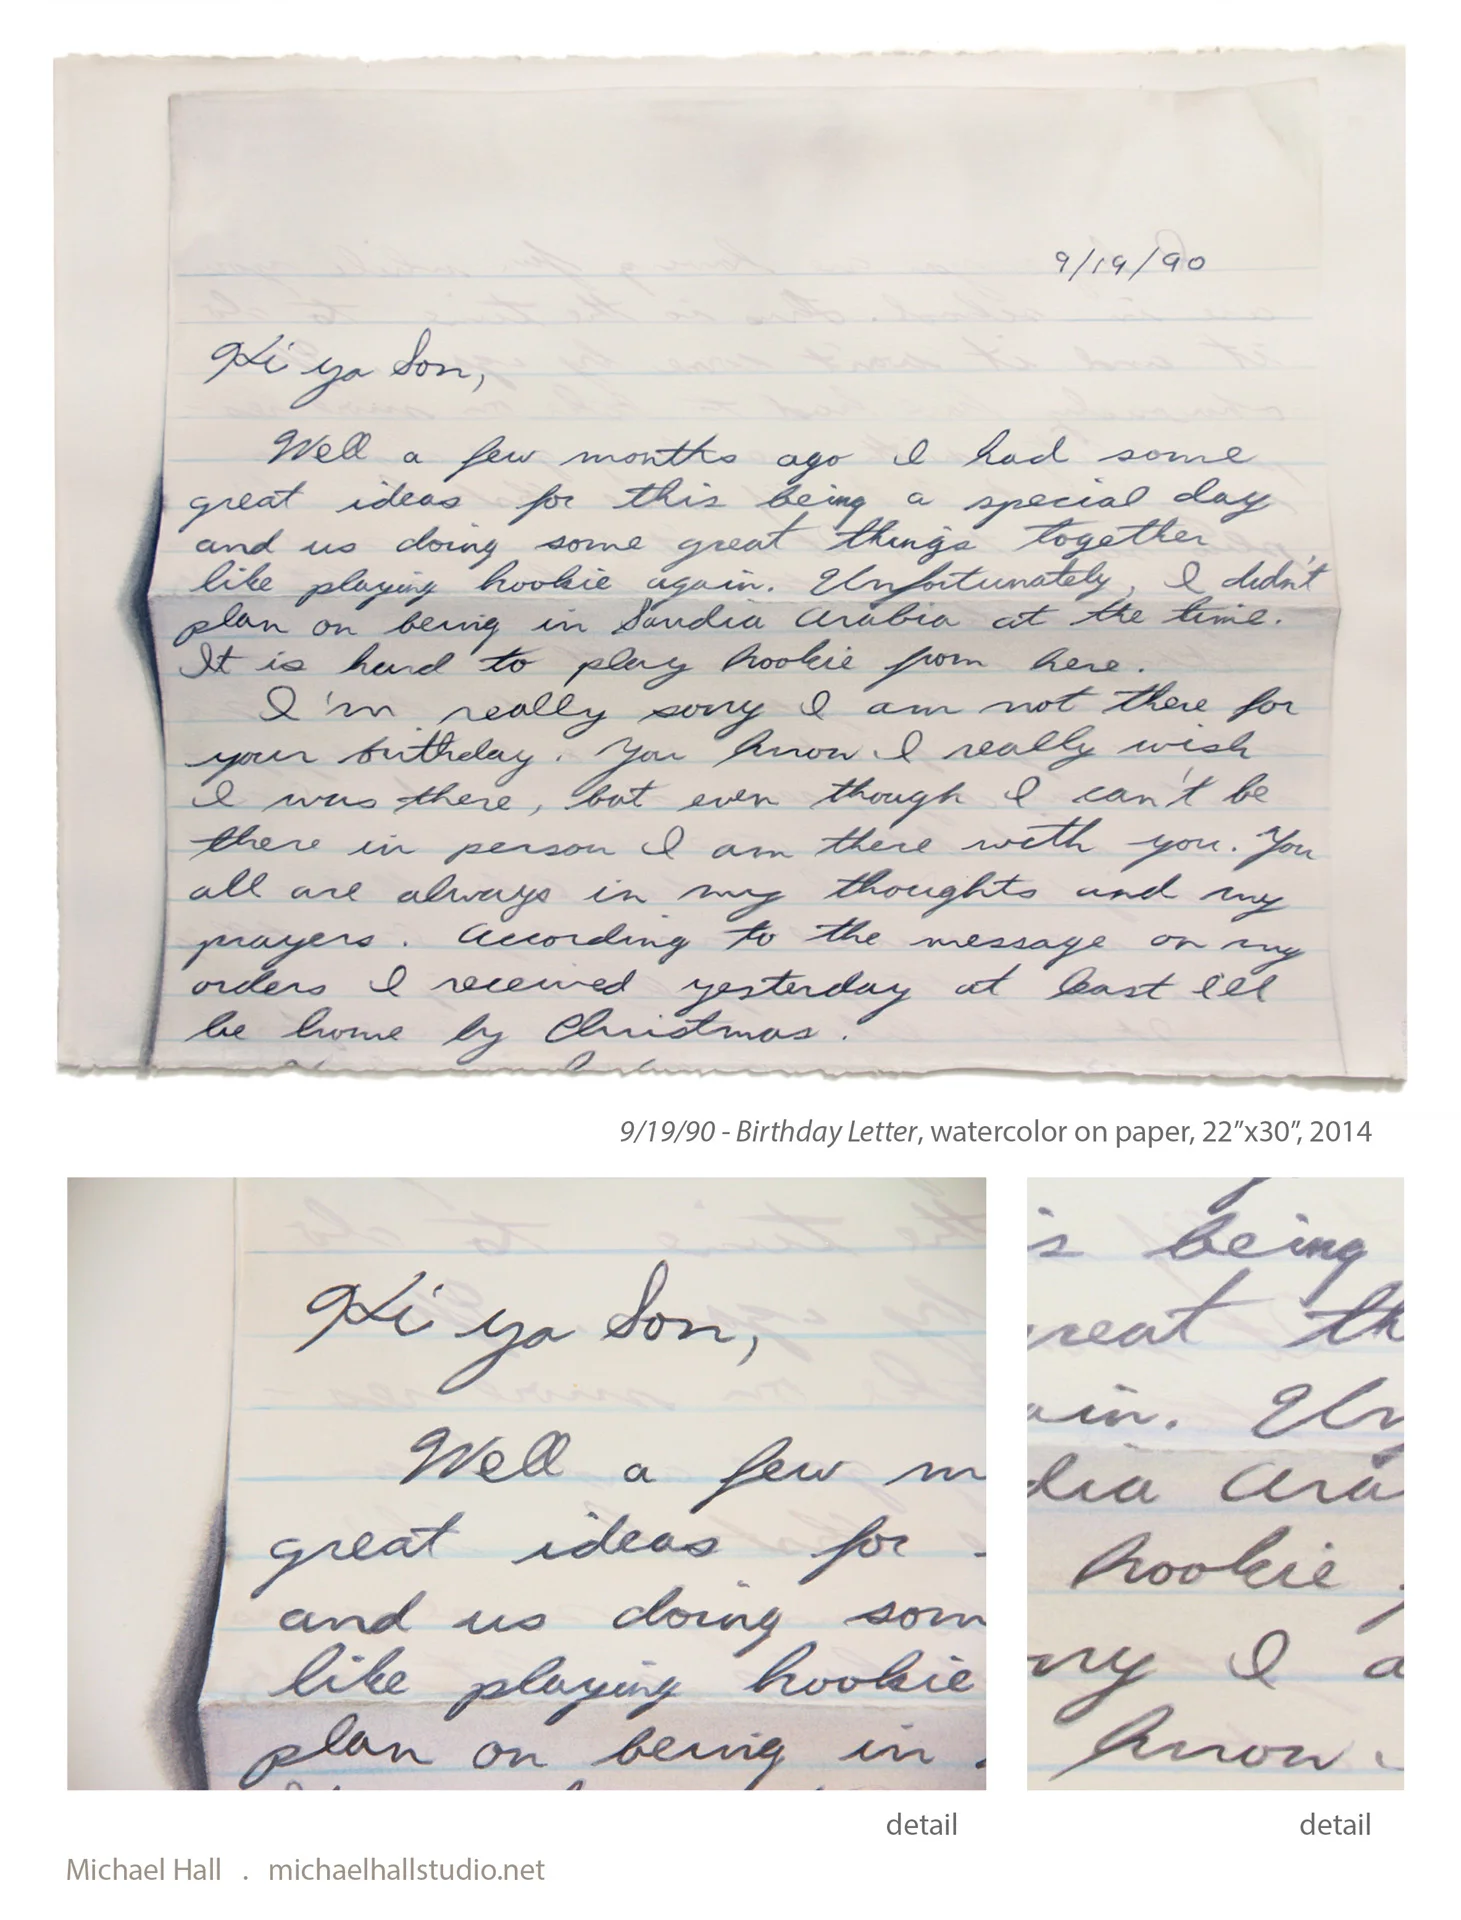 9/19/90
Hi ya Son,
Well a few months ago I had some
great ideas for this being a special day
and us doing some great things together
like playing hookie again. Unfortunately, I didn't
plan on being in Saudia Arabia at the time.
It is hard to play hookie from here.
I'm really sorry I am not there for
your birthday. You know I really wish
I was there, but even though I can't be
there in person I am there with you. You
all are always in my thoughts and my
prayers. According to the message on my
orders I received yesterday at least I'll
be home by Christmas.
9/19/90 - Birthday Letter, watercolor on paper, 22"x30", 2014
the time to do
Hi ya Son,
Well a few m
great ideas for
and us doing som
like playing hookie
plan on being in
is being
great th
ain. Un
dia Ara
hookie
rry I a
know
detail
detail
Michael Hall . michaelhallstudio.net